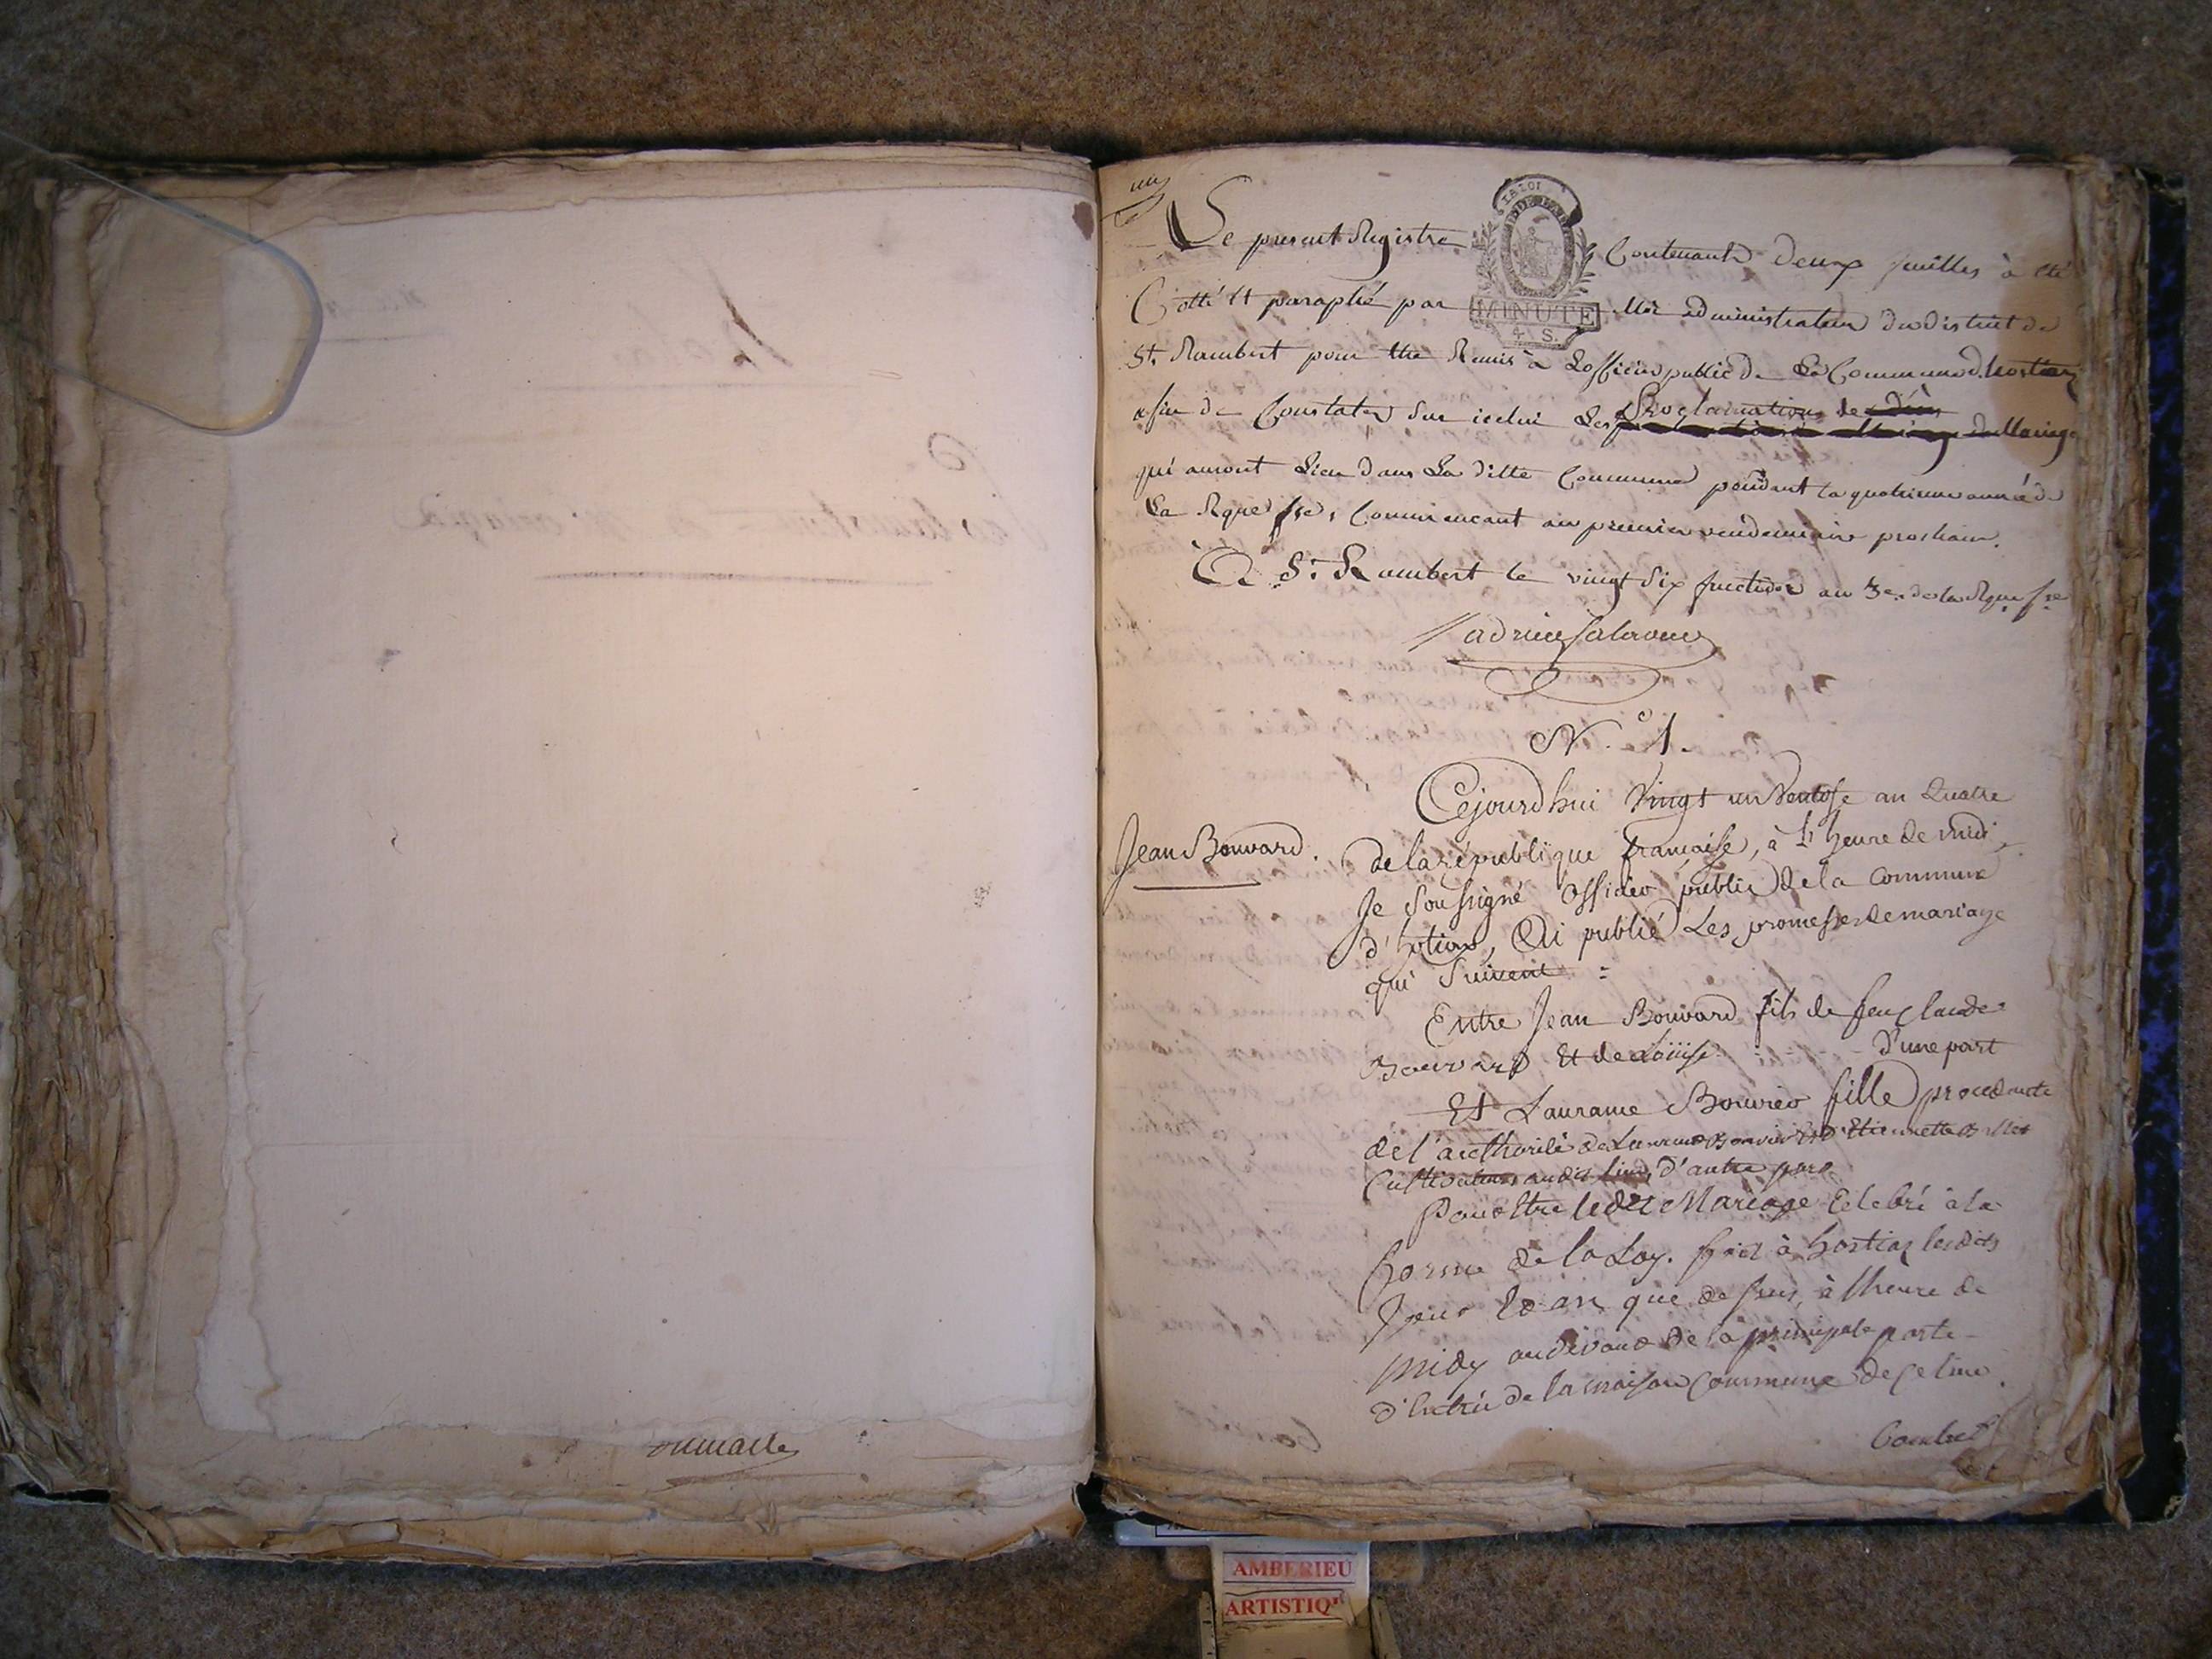 Le present Registre Contenant deux feuilles à été
Cotté et paraphé par Moi administrateur du district de
St. Rambert pour être Remis à Lofficier public de La Commune d'hostiaz
afin de Constater sur icelui Les proclamations de Mariage
qui auront Lieu dans La ditte Commune pendant la quatrieme année de
La Rque fse, Commencant au premier vendemiaire prochain.
A St. Rambert le vingt Six fructidor an 3e. de la Rque fse
LA LOI
MINUTE
4. S.
N.° 1.
Jean Bouvard.
Cejourdhui Vingt un Ventose an Quatre
de la république francaise, à l'heure de midi,
Je Soussigné officier public de la commune
d'hotiaz, Ai publié Les promesses de mariage
qui Suivent :
Entre Jean Bouvard fils de feu Claude
Bouvard Et de Loüise d'une part
Et Laurance Bouvier fille procedante
de l'authorité de Laurent Bouvier Et d'Etiennette
Cultivateurs audit lieu d'autre part
Pour être ledit Mariage Celebré à la
forme de la Loy. fait à hostiaz lesdits
Jour et an que dessus, à lheure de
midy audevant de la principale porte
d'Entrée de la maison Commune de Ce lieu.
AMBERIEU
ARTISTIQ